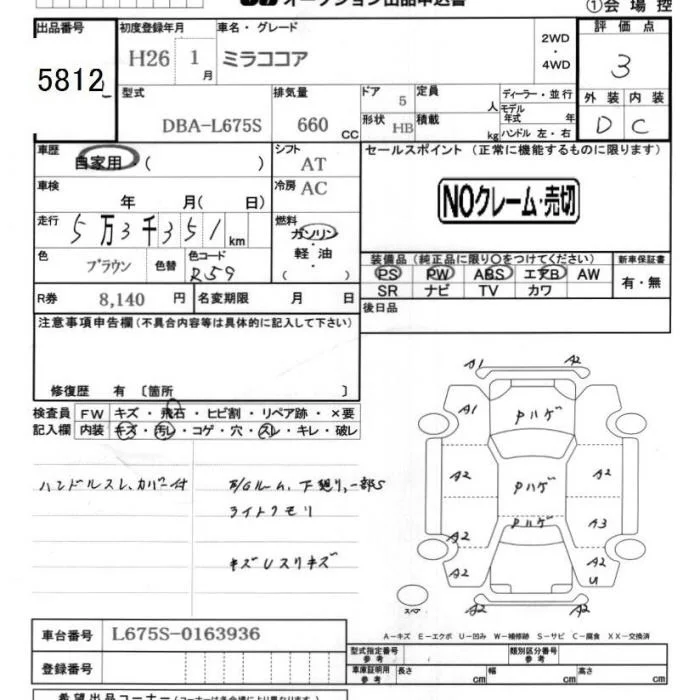 オークション出品申込書
①会場控
出品番号
5812
初度登録年月
H26 1月
車名・グレード
ミラココア
2WD
・
4WD
評価点
3
外装 内装
D C
型式
DBA-L675S
排気量
660 cc
ドア 5
形状 HB
定員 人
積載 kg
ディーラー・並行
モデル年式 年
ハンドル 左・右
車歴
自家用 ( )
シフト
AT
セールスポイント (正常に機能するものに限ります)
NOクレーム・売切
車検
年 月( 日)
冷房
AC
走行
5万3千351km
燃料
ガソリン
軽油
( )
色
ブラウン
色替
色コード
R59
装備品 (純正品に限り〇をつけてください)
PS PW ABS エアB AW
SR ナビ TV カワ
新車保証書
有・無
R券 8,140 円
名変期限 月 日
後日品
注意事項申告欄 (不具合内容等は具体的に記入して下さい)
修復歴 有 〔箇所 〕
検査員記入欄
FW キズ・飛石・ヒビ割・リペア跡・×要
内装 キズ・汚レ・コゲ・穴・スレ・キレ・破レ
ハンドルスレ、カバー付
下廻り、一部S
ライトクモリ
キズUスリキズ
A1 A2
A1 Pハゲ
A2 Pハゲ A2
Pハゲ
A2 A3
A2 A2
U
A2 A2
スペア
A-キズ E-エクボ U-凹み W-補修跡 S-サビ C-腐食 XX-交換済
車台番号 L675S-0163936
登録番号
型式指定番号 参考
類別区分番号 参考
車庫証明用 参考 長さ cm 幅 cm 高さ cm
希望出品コーナー (コーナーは各会場により異なります)